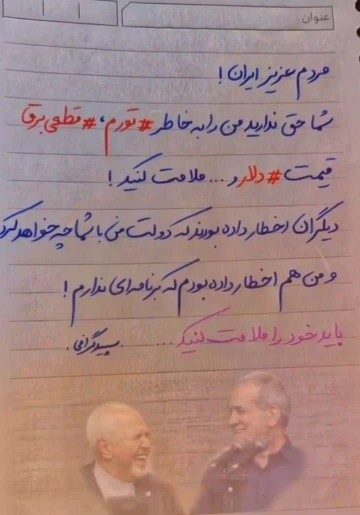 عنوان
مردم عزیز ایران!
شما حق ندارید من را به خاطر #تورم، #قطعی برق
قیمت #دلار و ... ملامت کنید!
دیگران اخطار داده بودند که دولت من با شما چه خواهد کرد
و من هم اخطار داده بودم که برنامه‌ای ندارم!
باید خود را ملامت کنید ........